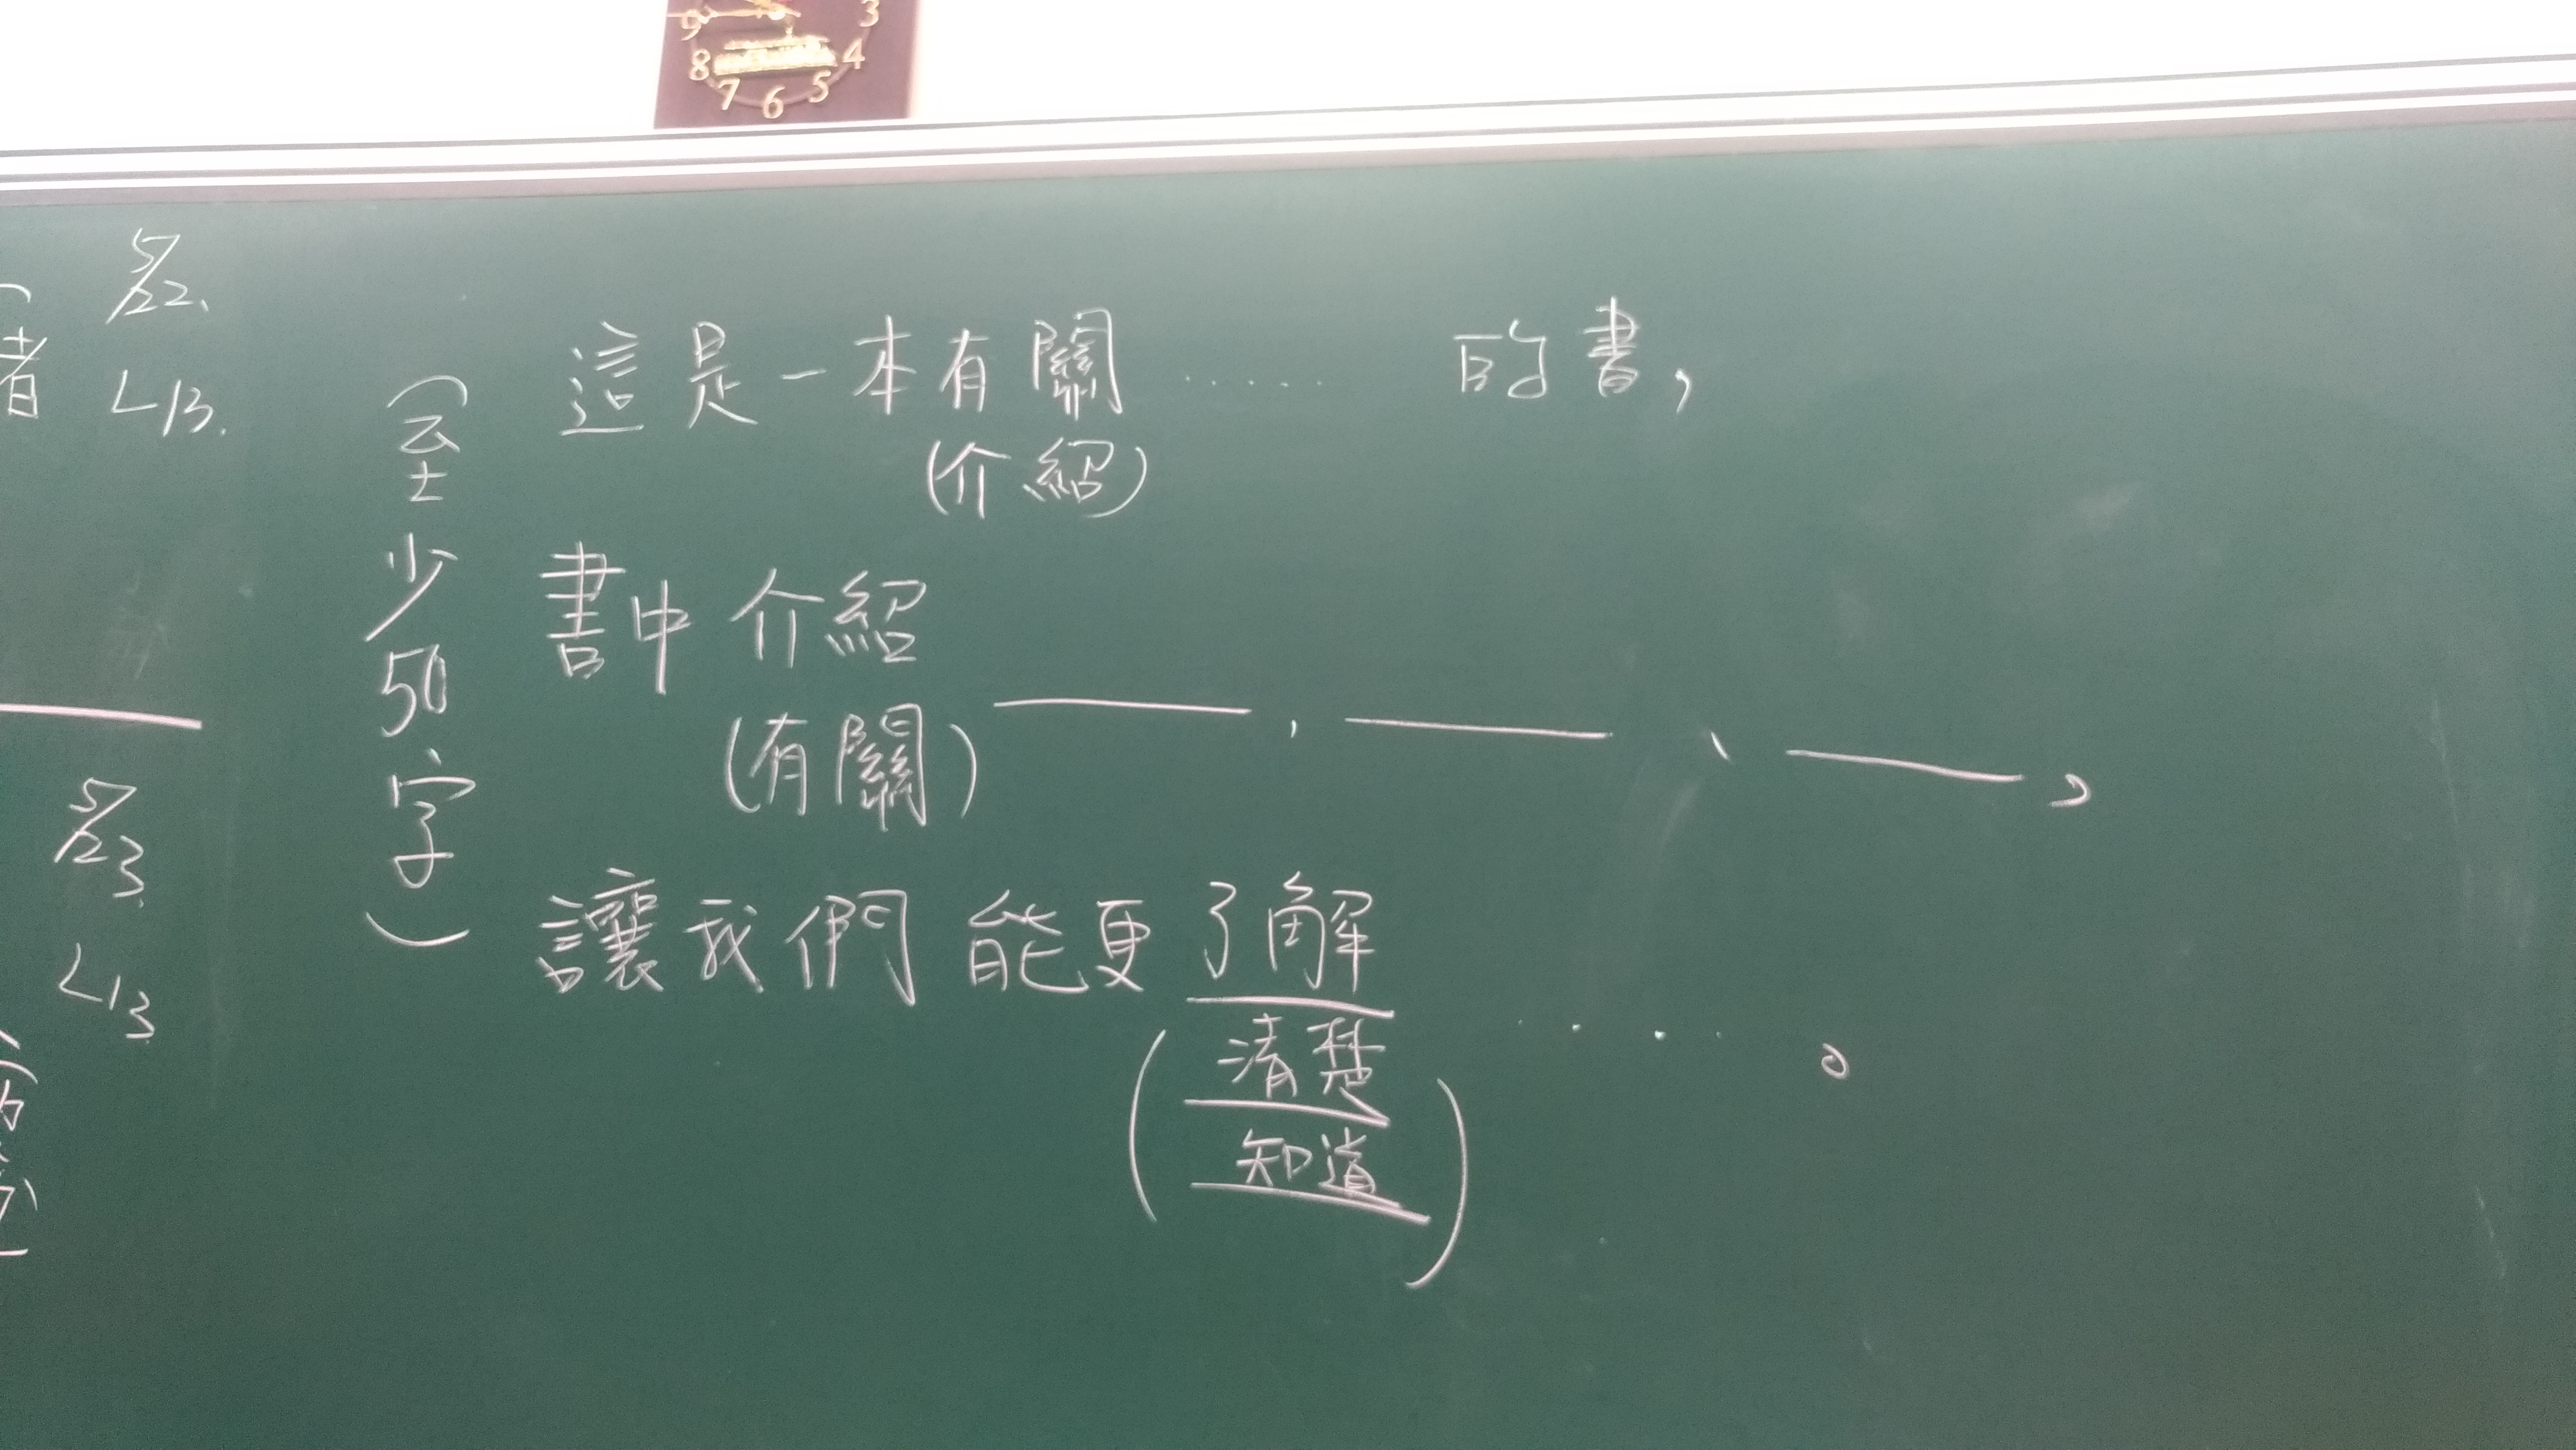 9 3
8 4
7 6 5
5/22.
L13.
者
(至少50字)
這是一本有關...... 的書,
(介紹)
書中介紹
(有關) ____、____、____,
讓我們能更了解
清楚 .... 。
(知道)
5/23.
L13